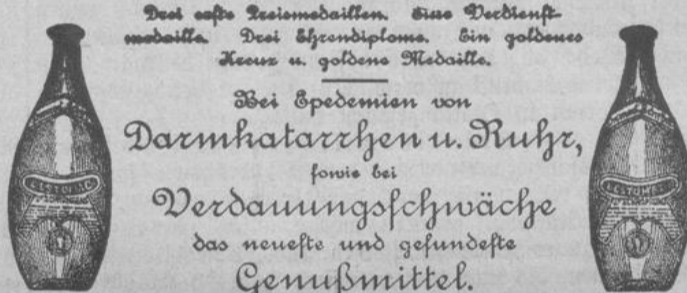 Drei erste Preismedaillen. Eine Verdienst-
medaille. Drei Ehrendiplome. Ein goldenes
Kreuz u. goldene Medaille.
Bei Epedemien von
Darmkatarrhen u. Ruhr,
sowie bei
Verdauungsschwäche
das neueste und gesundeste
Genußmittel.